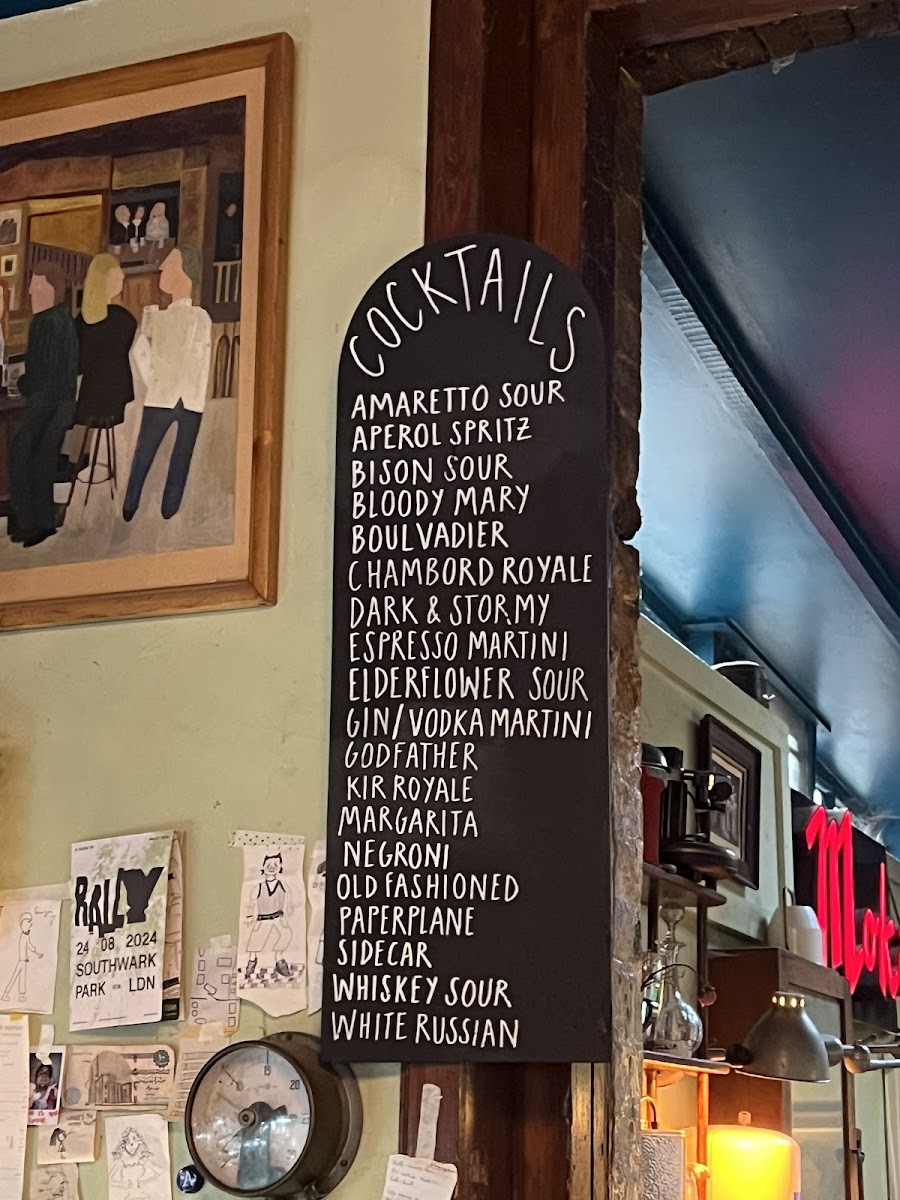 COCKTAILS
AMARETTO SOUR
APEROL SPRITZ
BISON SOUR
BLOODY MARY
BOULVADIER
CHAMBORD ROYALE
DARK & STORMY
ESPRESSO MARTINI
ELDERFLOWER SOUR
GIN/VODKA MARTINI
GODFATHER
KIR ROYALE
MARGARITA
NEGRONI
OLD FASHIONED
PAPERPLANE
SIDECAR
WHISKEY SOUR
WHITE RUSSIAN
RALLY
24 08 2024
SOUTHWARK
PARK - LDN
15
20